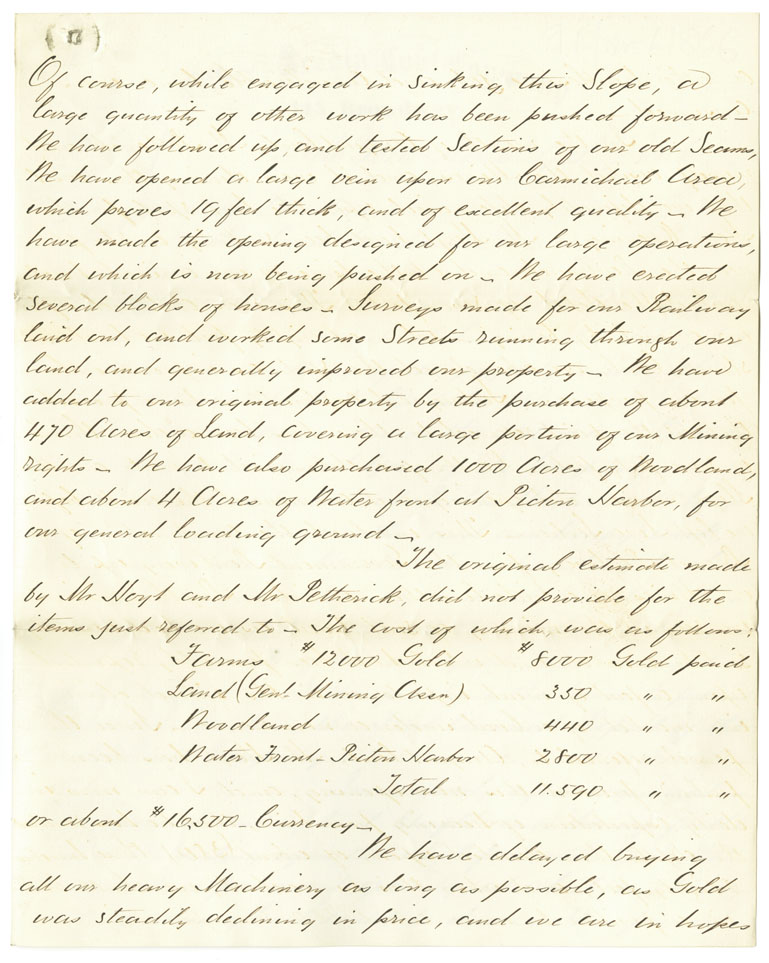 Of course, while engaged in sinking this Slope, a
large quantity of other work has been pushed forward –
We have followed up, and tested Sections of our old Seams,
We have opened a large vein upon our Carmichael Area,
which proves 19 feet thick, and of excellent quality – We
have made the opening designed for our large operations,
and which is now being pushed on – We have erected
several blocks of houses – Surveys made for our Railway
laid out, and worked some Streets running through our
land, and generally improved our property – We have
added to our original property by the purchase of about
470 Acres of Land, covering a large portion of our Mining
rights – We have also purchased 1000 Acres of Woodland,
and about 4 Acres of Water front at Picton Harbor, for
our general loading ground –
The original estimate made
by Mr Hoyt and Mr Petherick, did not provide for the
items just referred to – The cost of which was as follows:
Farms $12000 Gold $8000 Gold paid
Land (Genl. Mining Assn) 350 " "
Woodland 440 " "
Water Front – Picton Harbor 2800 " "
Total 11.590 " "
or about $16,500 – Currency –
We have delayed buying
all our heavy Machinery as long as possible, as Gold
was steadily declining in price, and we are in hopes